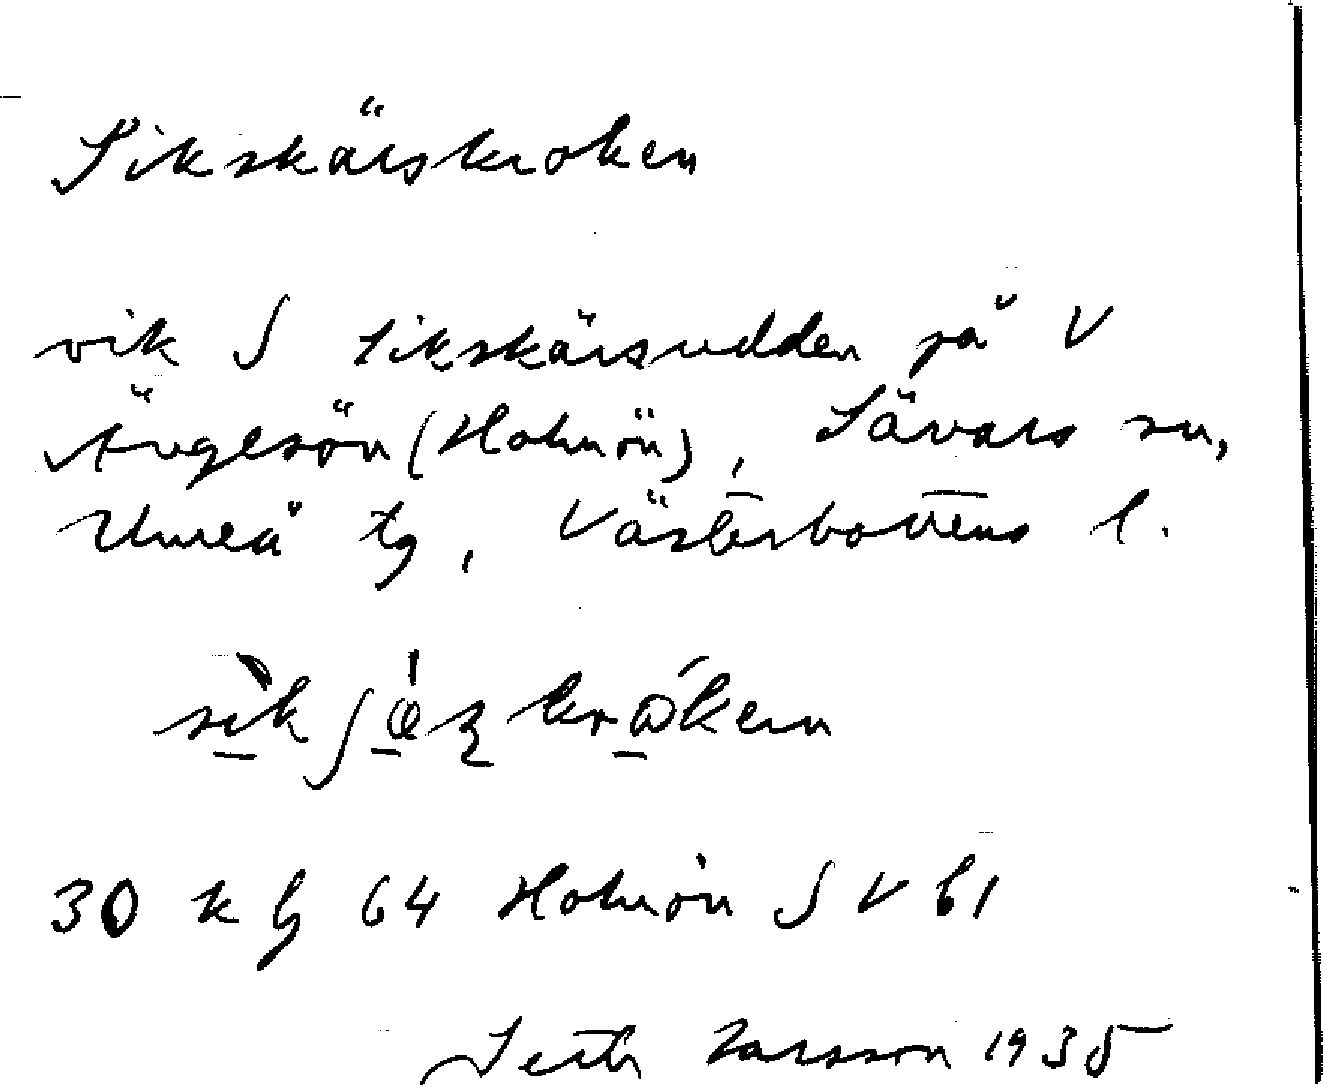 Sikskärskroken
vik S Sikskärsudden på V
Ängesön (Holmön), Sävars sn,
Umeå tg, Västerbottens l.
30 k bg 64 Holmön SV bl
Seth Larsson 1935